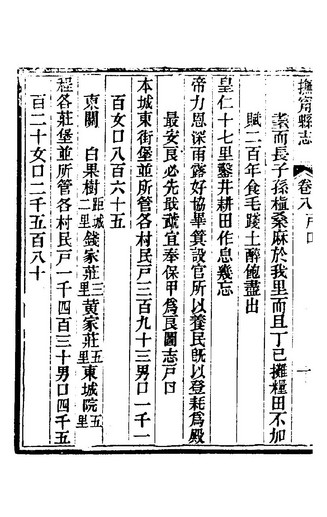 撫甯縣志 卷八戶口
業而長子孫植桑麻於我里而且丁已擁糧田不加
賦二百年食毛踐土醉飽盡出
皇仁十七里鑿井耕田作息幾忘
帝力恩深雨露好協畢箕設官所以養民旣以登耗爲殿
最安良必先戢宜奉保甲爲良圖志戶口
本城東街堡並所管各村民戶三百九十三男口一千一
百女口八百六十五
東關 白果樹距城二里錢家莊三里黃家莊五里東城院五里
程各莊堡並所管各村民戶一千四百三十男口四千五
百二十女口二千五百八十